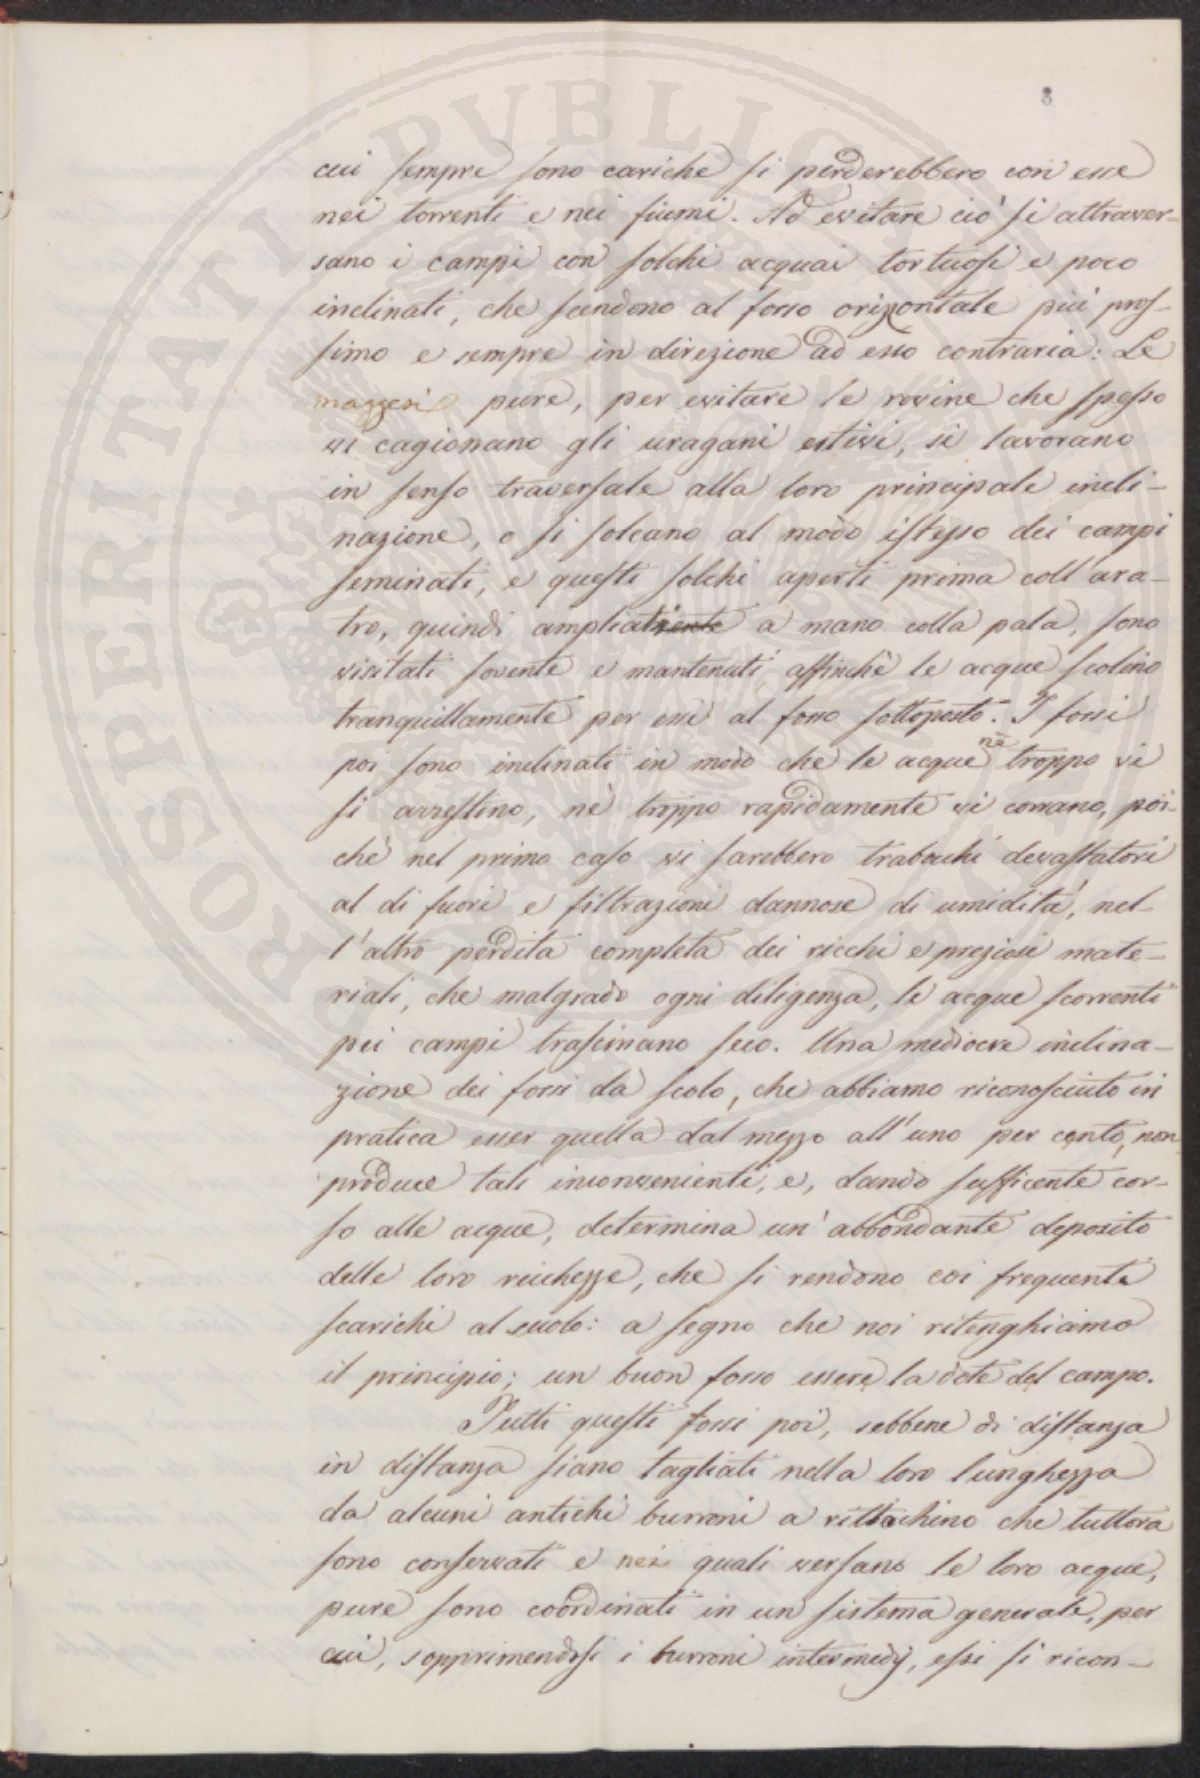 8
cui sempre sono cariche si perderebbero con esse
nei torrenti e nei fiumi. Ad evitare ciò si attraver-
sano i campi con solchi acquai tortuosi e poco
inclinati, che scendono al fosso orizzontale più pros-
simo e sempre in direzione ad esso contraria: Le
maggesi pure, per evitare le rovine che spesso
vi cagionano gli uragani estivi, si lavorano
in senso traversale alla loro principale incli-
nazione, e si solcano al modo istesso dei campi
seminati, e questi solchi aperti prima coll'ara-
tro, quindi ampliati a mano colla pala, sono
visitati sovente e mantenuti affinchè le acque scolino
tranquillamente per essi al fosso sottoposto. I fossi
poi sono inclinati in modo che le acque nè troppo vi
si arrestino, nè troppo rapidamente vi corrano, poi-
chè nel primo caso vi sarebbero trabocchi devastatori
al di fuori e filtrazioni dannose di umidità, nel-
l'altro perdita completa dei ricchi e preziosi mate-
riali, che malgrado ogni diligenza, le acque scorrenti
pei campi trascinano seco. Una mediocre inclina-
zione dei fossi da scolo, che abbiamo riconosciuto in
pratica esser quella dal mezzo all'uno per cento, non
produce tali inconvenienti, e, dando sufficente cor-
so alle acque, determina un'abbondante deposito
delle loro ricchezze, che si rendono coi frequenti
scarichi al suolo: a segno che noi ritenghiamo
il principio; un buon fosso essere la dote del campo.
Tutti questi fossi poi, sebbene di distanza
in distanza siano tagliati nella loro lunghezza
da alcuni antichi burroni a rittochino che tuttora
sono conservati e nei quali versano le loro acque,
pure sono coordinati in un sistema generale, per
cui, sopprimendosi i burroni intermedj, essi si ricon-
PROSPERITATI PUBLICAE